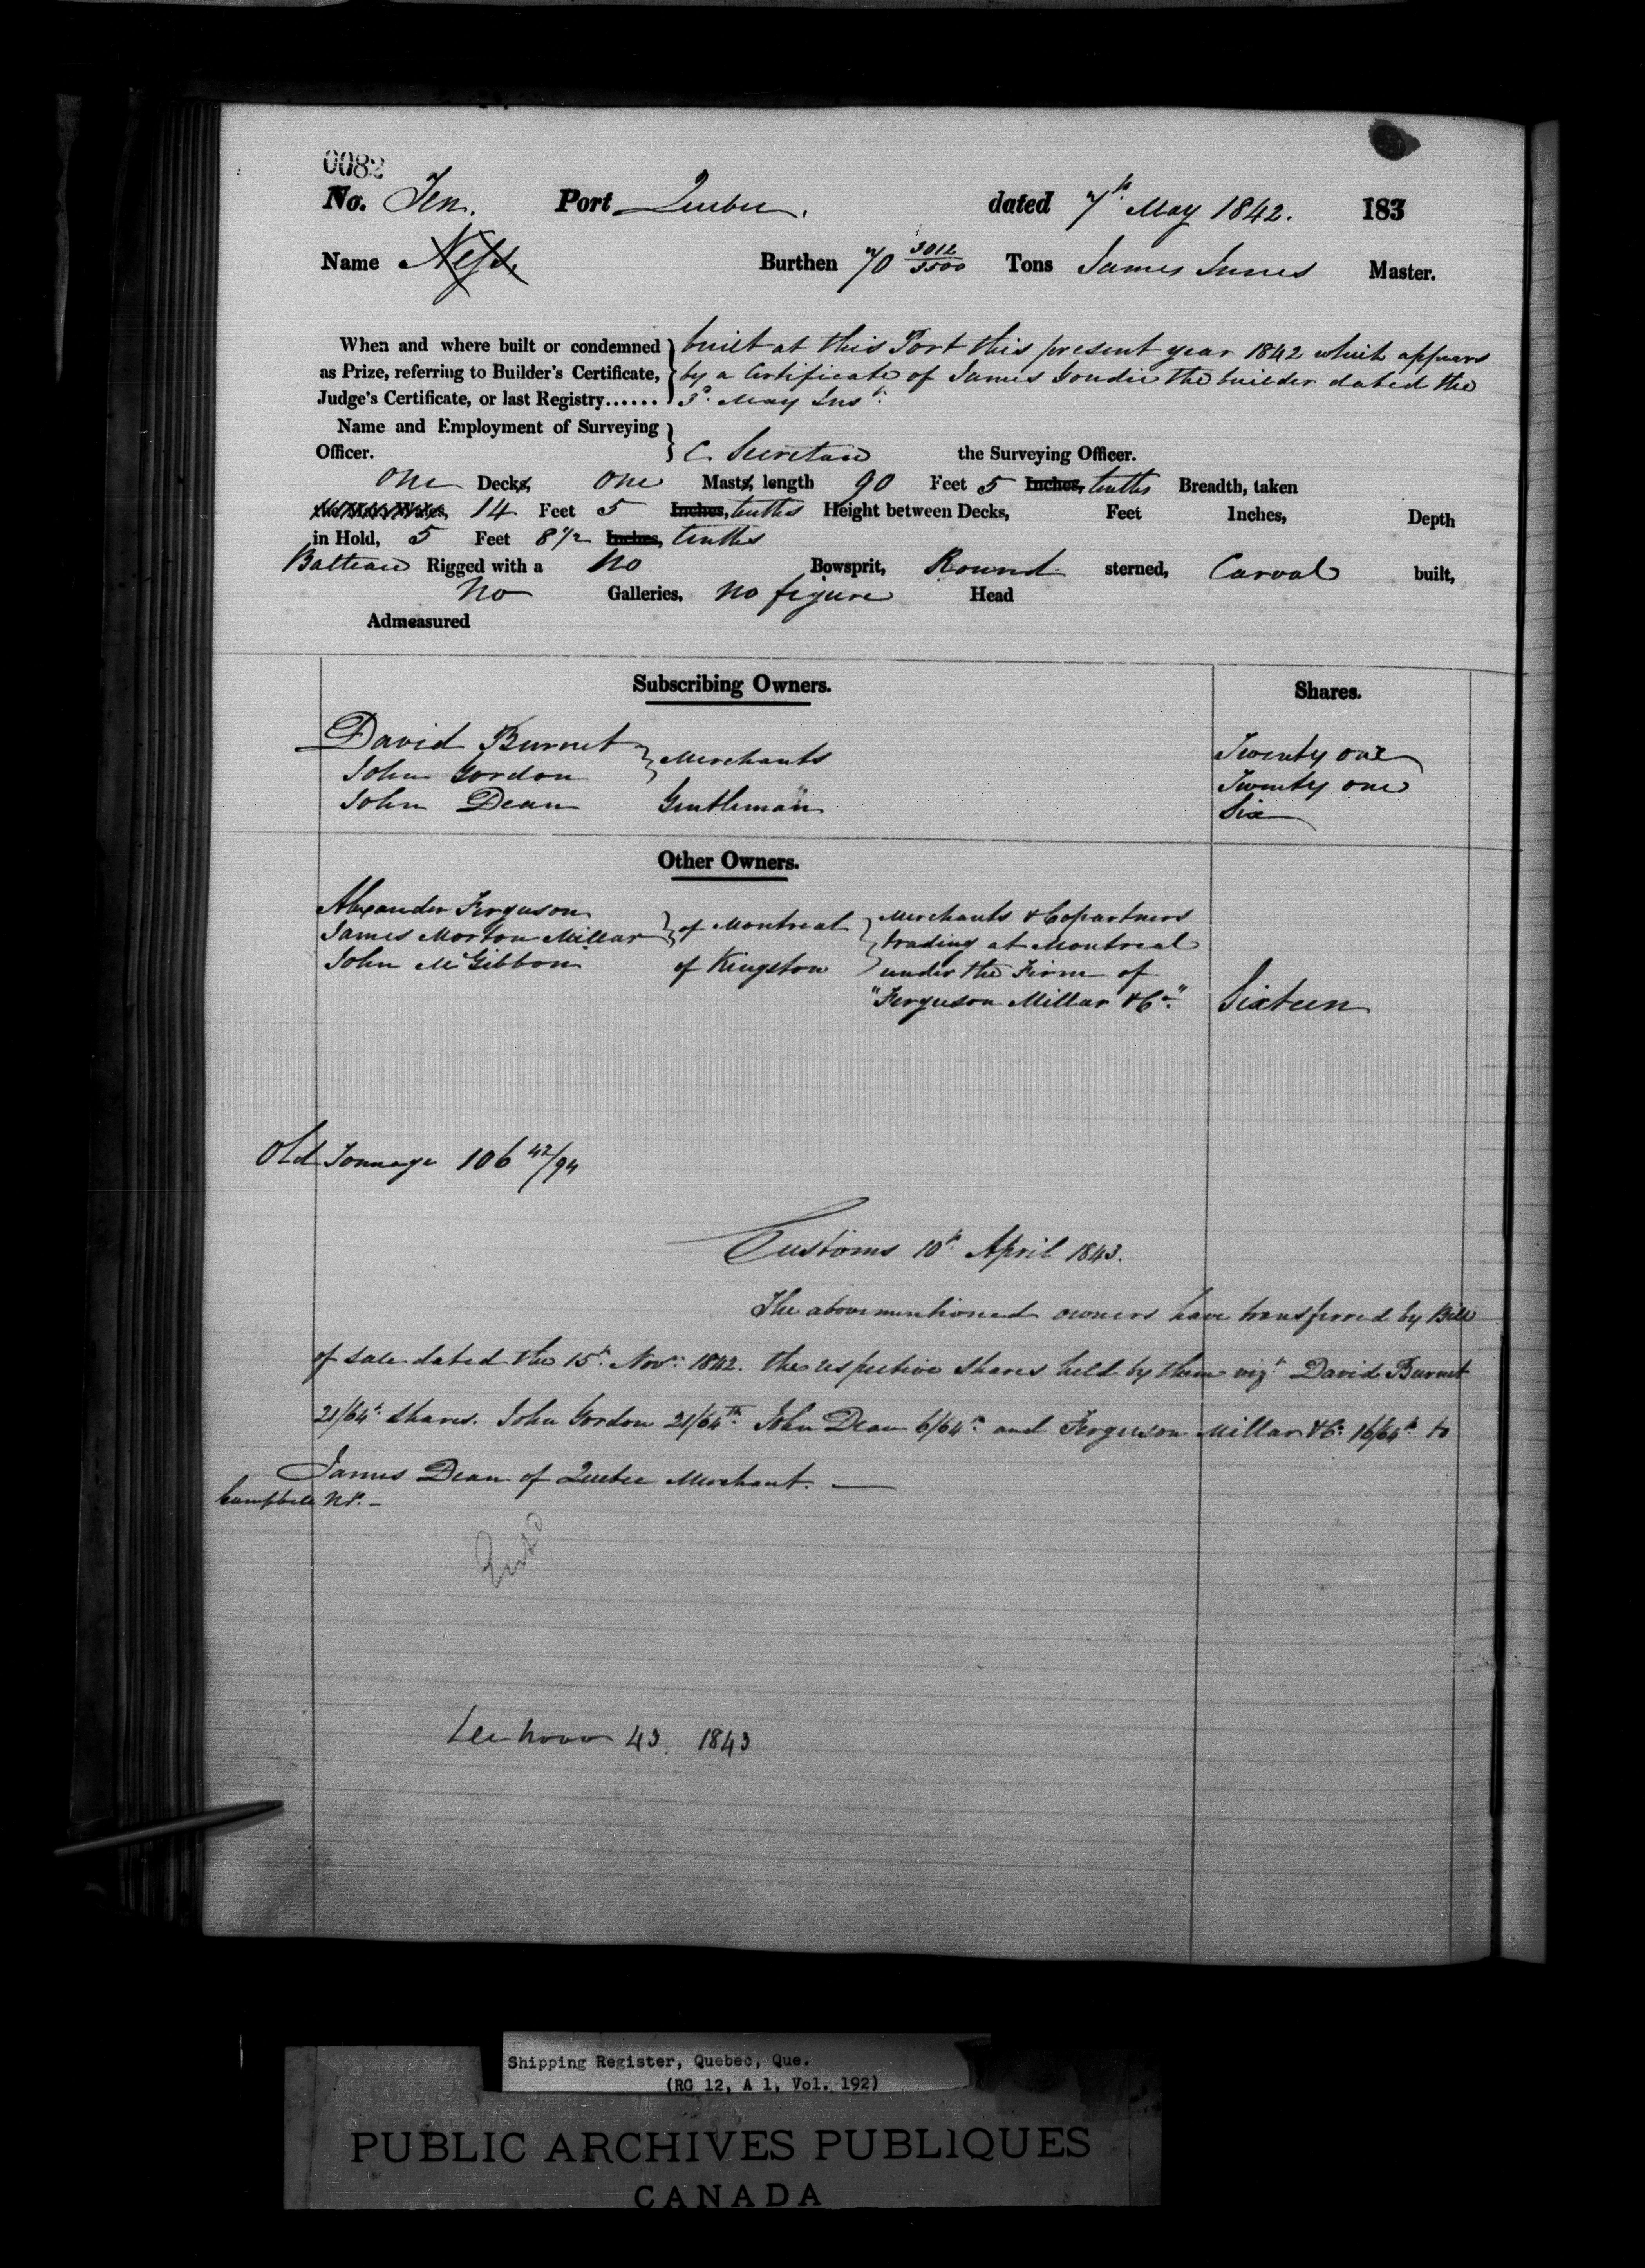 0082
No. Ten. Port Quebec. dated 7th May 1842. 183
Name Ness. Burthen 70 3012/3500 Tons James Innes Master.
When and where built or condemned as Prize, referring to Builder's Certificate, Judge's Certificate, or last Registry......
built at this Port this present year 1842 which appears
by a Certificate of James Goudie the builder dated the
3d. May Inst.
Name and Employment of Surveying Officer. C. Secretan the Surveying Officer.
One Decks, One Masts, length 90 Feet 5 Inches, tenths Breadth, taken
14 Feet 5 Inches, tenths Height between Decks, Feet Inches, Depth
in Hold, 5 Feet 8 1/2 Inches, tenths
Batteau Rigged with a No Bowsprit, Round sterned, Carval built,
No Galleries, no figure Head
Admeasured
Subscribing Owners. Shares.
David Burnet } Merchants Twenty one
John Gordon Twenty one
John Dean Gentleman Six
Other Owners.
Alexander Ferguson
James Morton Millar } of Montreal
John McGibbon of Kingston
} Merchants & Copartners
trading at Montreal
under the Firm of
"Ferguson Millar & Co." Sixteen
Old Tonnage 106 42/94
Customs 10th April 1843.
The abovementioned owners have transferred by Bill
of Sale dated the 15th Novr. 1842. the respective Shares held by them vizt. David Burnet
21/64th Shares. John Gordon 21/64th John Dean 6/64th and Ferguson Millar & Co. 16/64th to
James Dean of Quebec Merchant.
Campbell NP.
43. 1843
Shipping Register, Quebec, Que.
(RG 12, A 1, Vol. 192)
PUBLIC ARCHIVES PUBLIQUES
CANADA